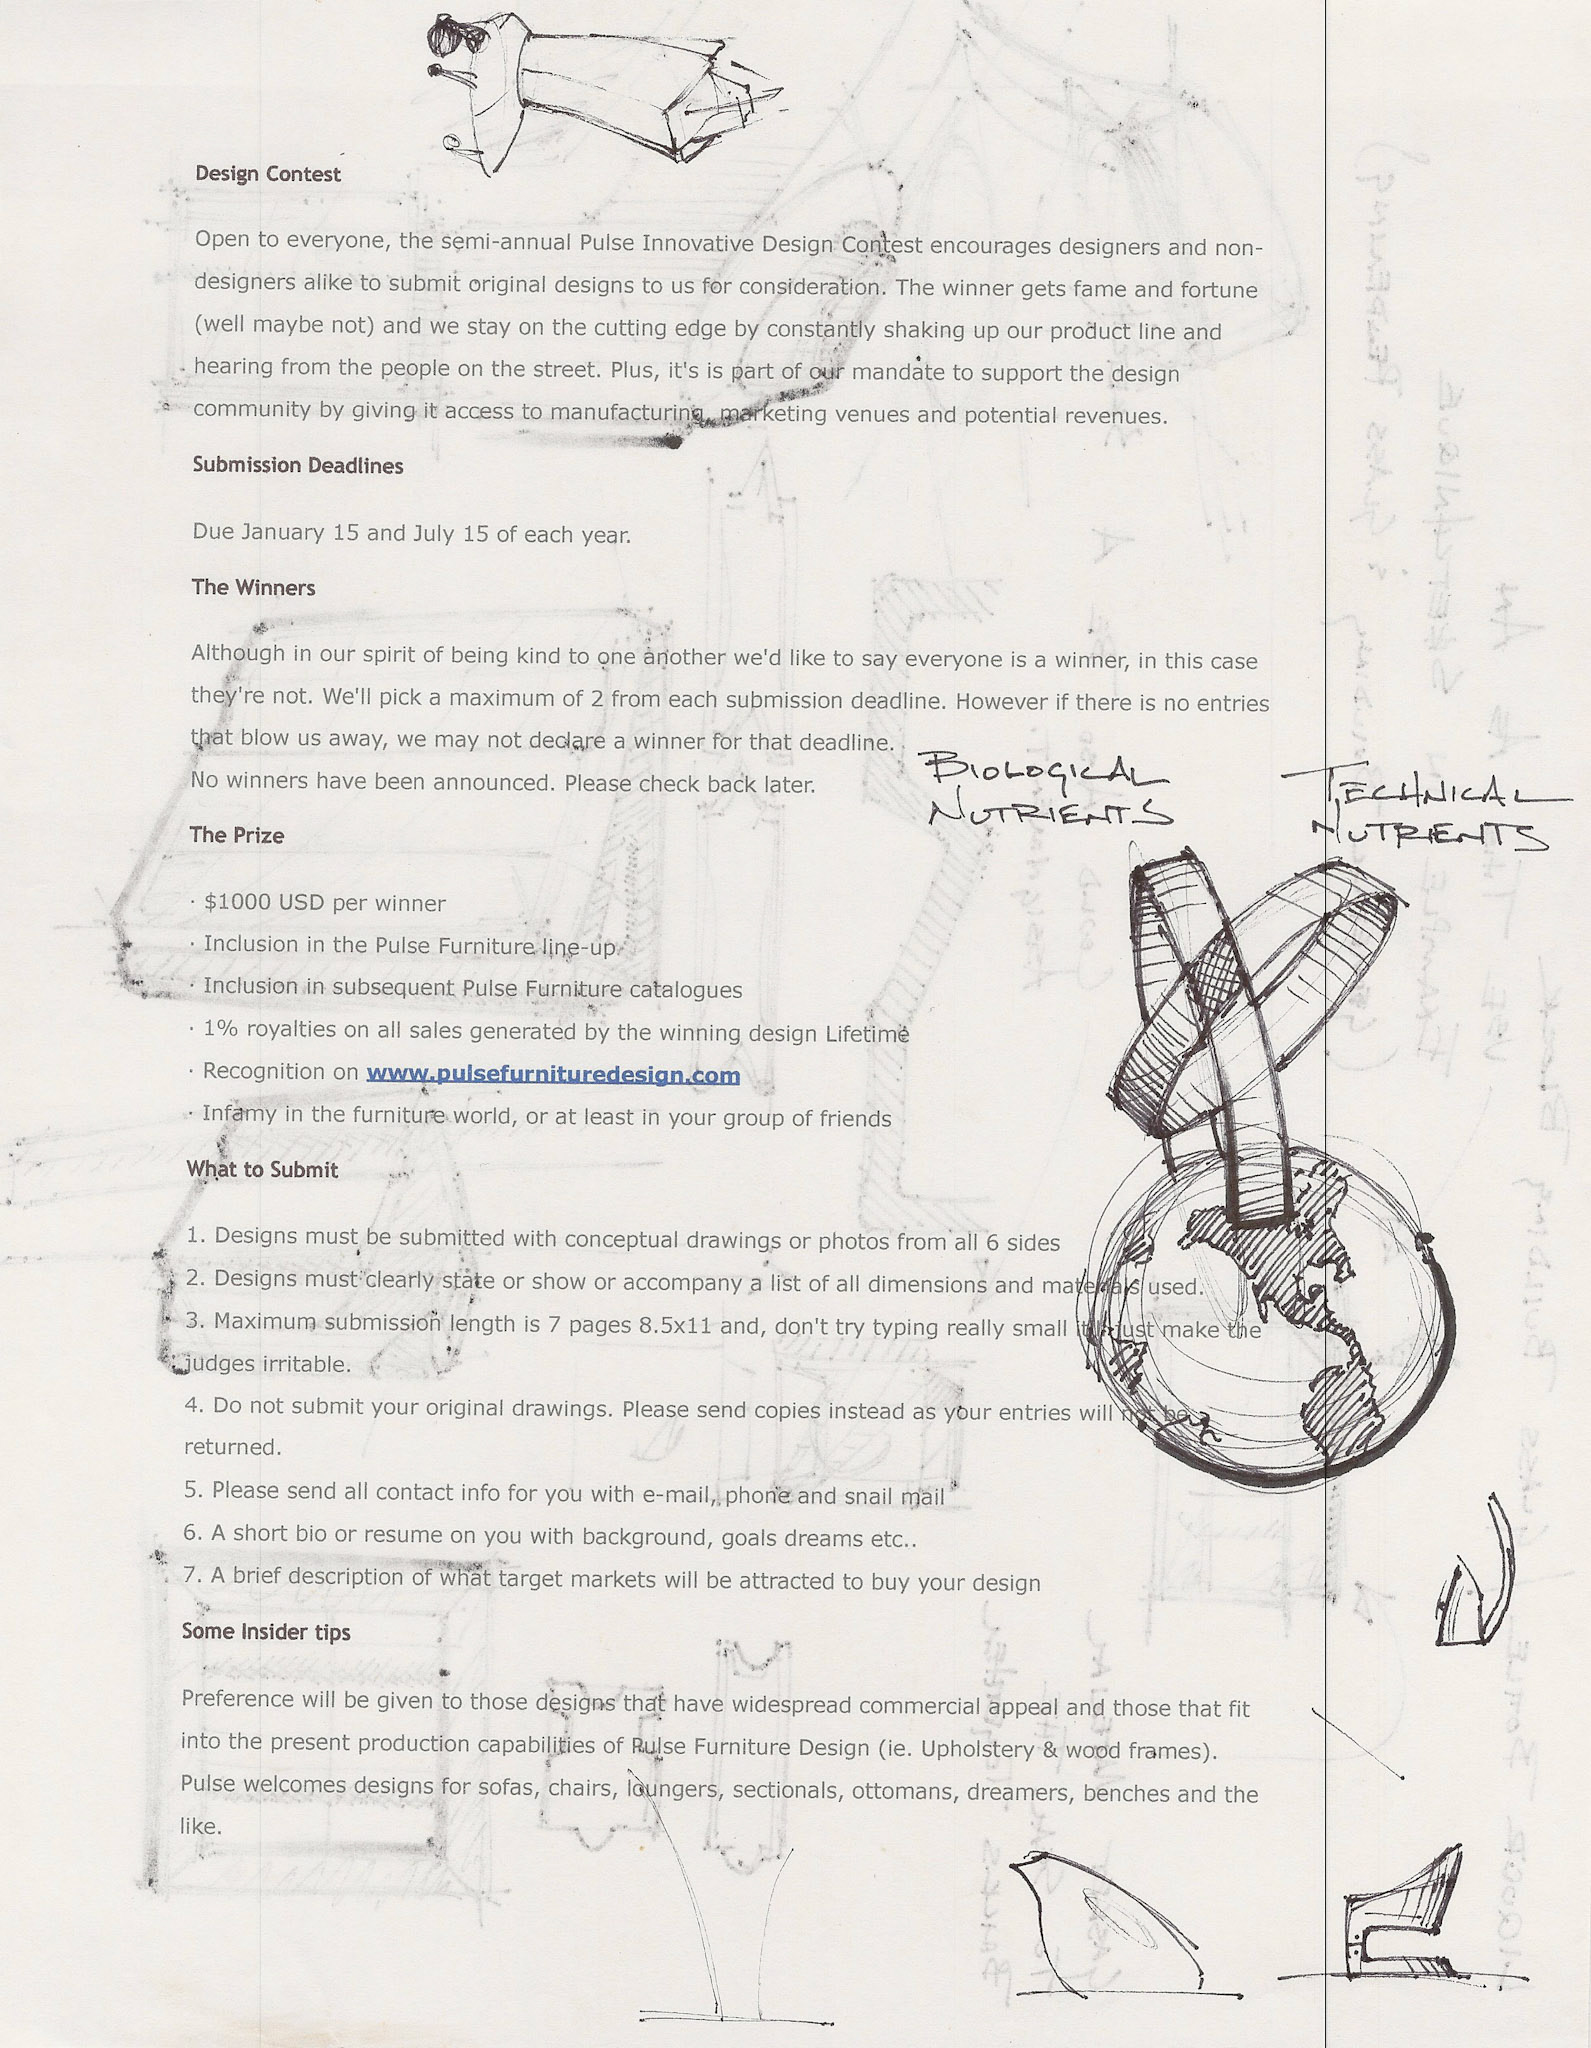 Design Contest
Open to everyone, the semi-annual Pulse Innovative Design Contest encourages designers and non-
designers alike to submit original designs to us for consideration. The winner gets fame and fortune
(well maybe not) and we stay on the cutting edge by constantly shaking up our product line and
hearing from the people on the street. Plus, it's is part of our mandate to support the design
community by giving it access to manufacturing, marketing venues and potential revenues.
Submission Deadlines
Due January 15 and July 15 of each year.
The Winners
Although in our spirit of being kind to one another we'd like to say everyone is a winner, in this case
they're not. We'll pick a maximum of 2 from each submission deadline. However if there is no entries
that blow us away, we may not declare a winner for that deadline.
No winners have been announced. Please check back later.
BIOLOGICAL
NUTRIENTS
TECHNICAL
NUTRIENTS
The Prize
· $1000 USD per winner
· Inclusion in the Pulse Furniture line-up
· Inclusion in subsequent Pulse Furniture catalogues
· 1% royalties on all sales generated by the winning design Lifetime
· Recognition on www.pulsefurnituredesign.com
· Infamy in the furniture world, or at least in your group of friends
What to Submit
1. Designs must be submitted with conceptual drawings or photos from all 6 sides
2. Designs must clearly state or show or accompany a list of all dimensions and materials used.
3. Maximum submission length is 7 pages 8.5x11 and, don't try typing really small just make the
judges irritable.
4. Do not submit your original drawings. Please send copies instead as your entries will not be
returned.
5. Please send all contact info for you with e-mail, phone and snail mail
6. A short bio or resume on you with background, goals dreams etc..
7. A brief description of what target markets will be attracted to buy your design
Some Insider tips
Preference will be given to those designs that have widespread commercial appeal and those that fit
into the present production capabilities of Pulse Furniture Design (ie. Upholstery & wood frames).
Pulse welcomes designs for sofas, chairs, loungers, sectionals, ottomans, dreamers, benches and the
like.